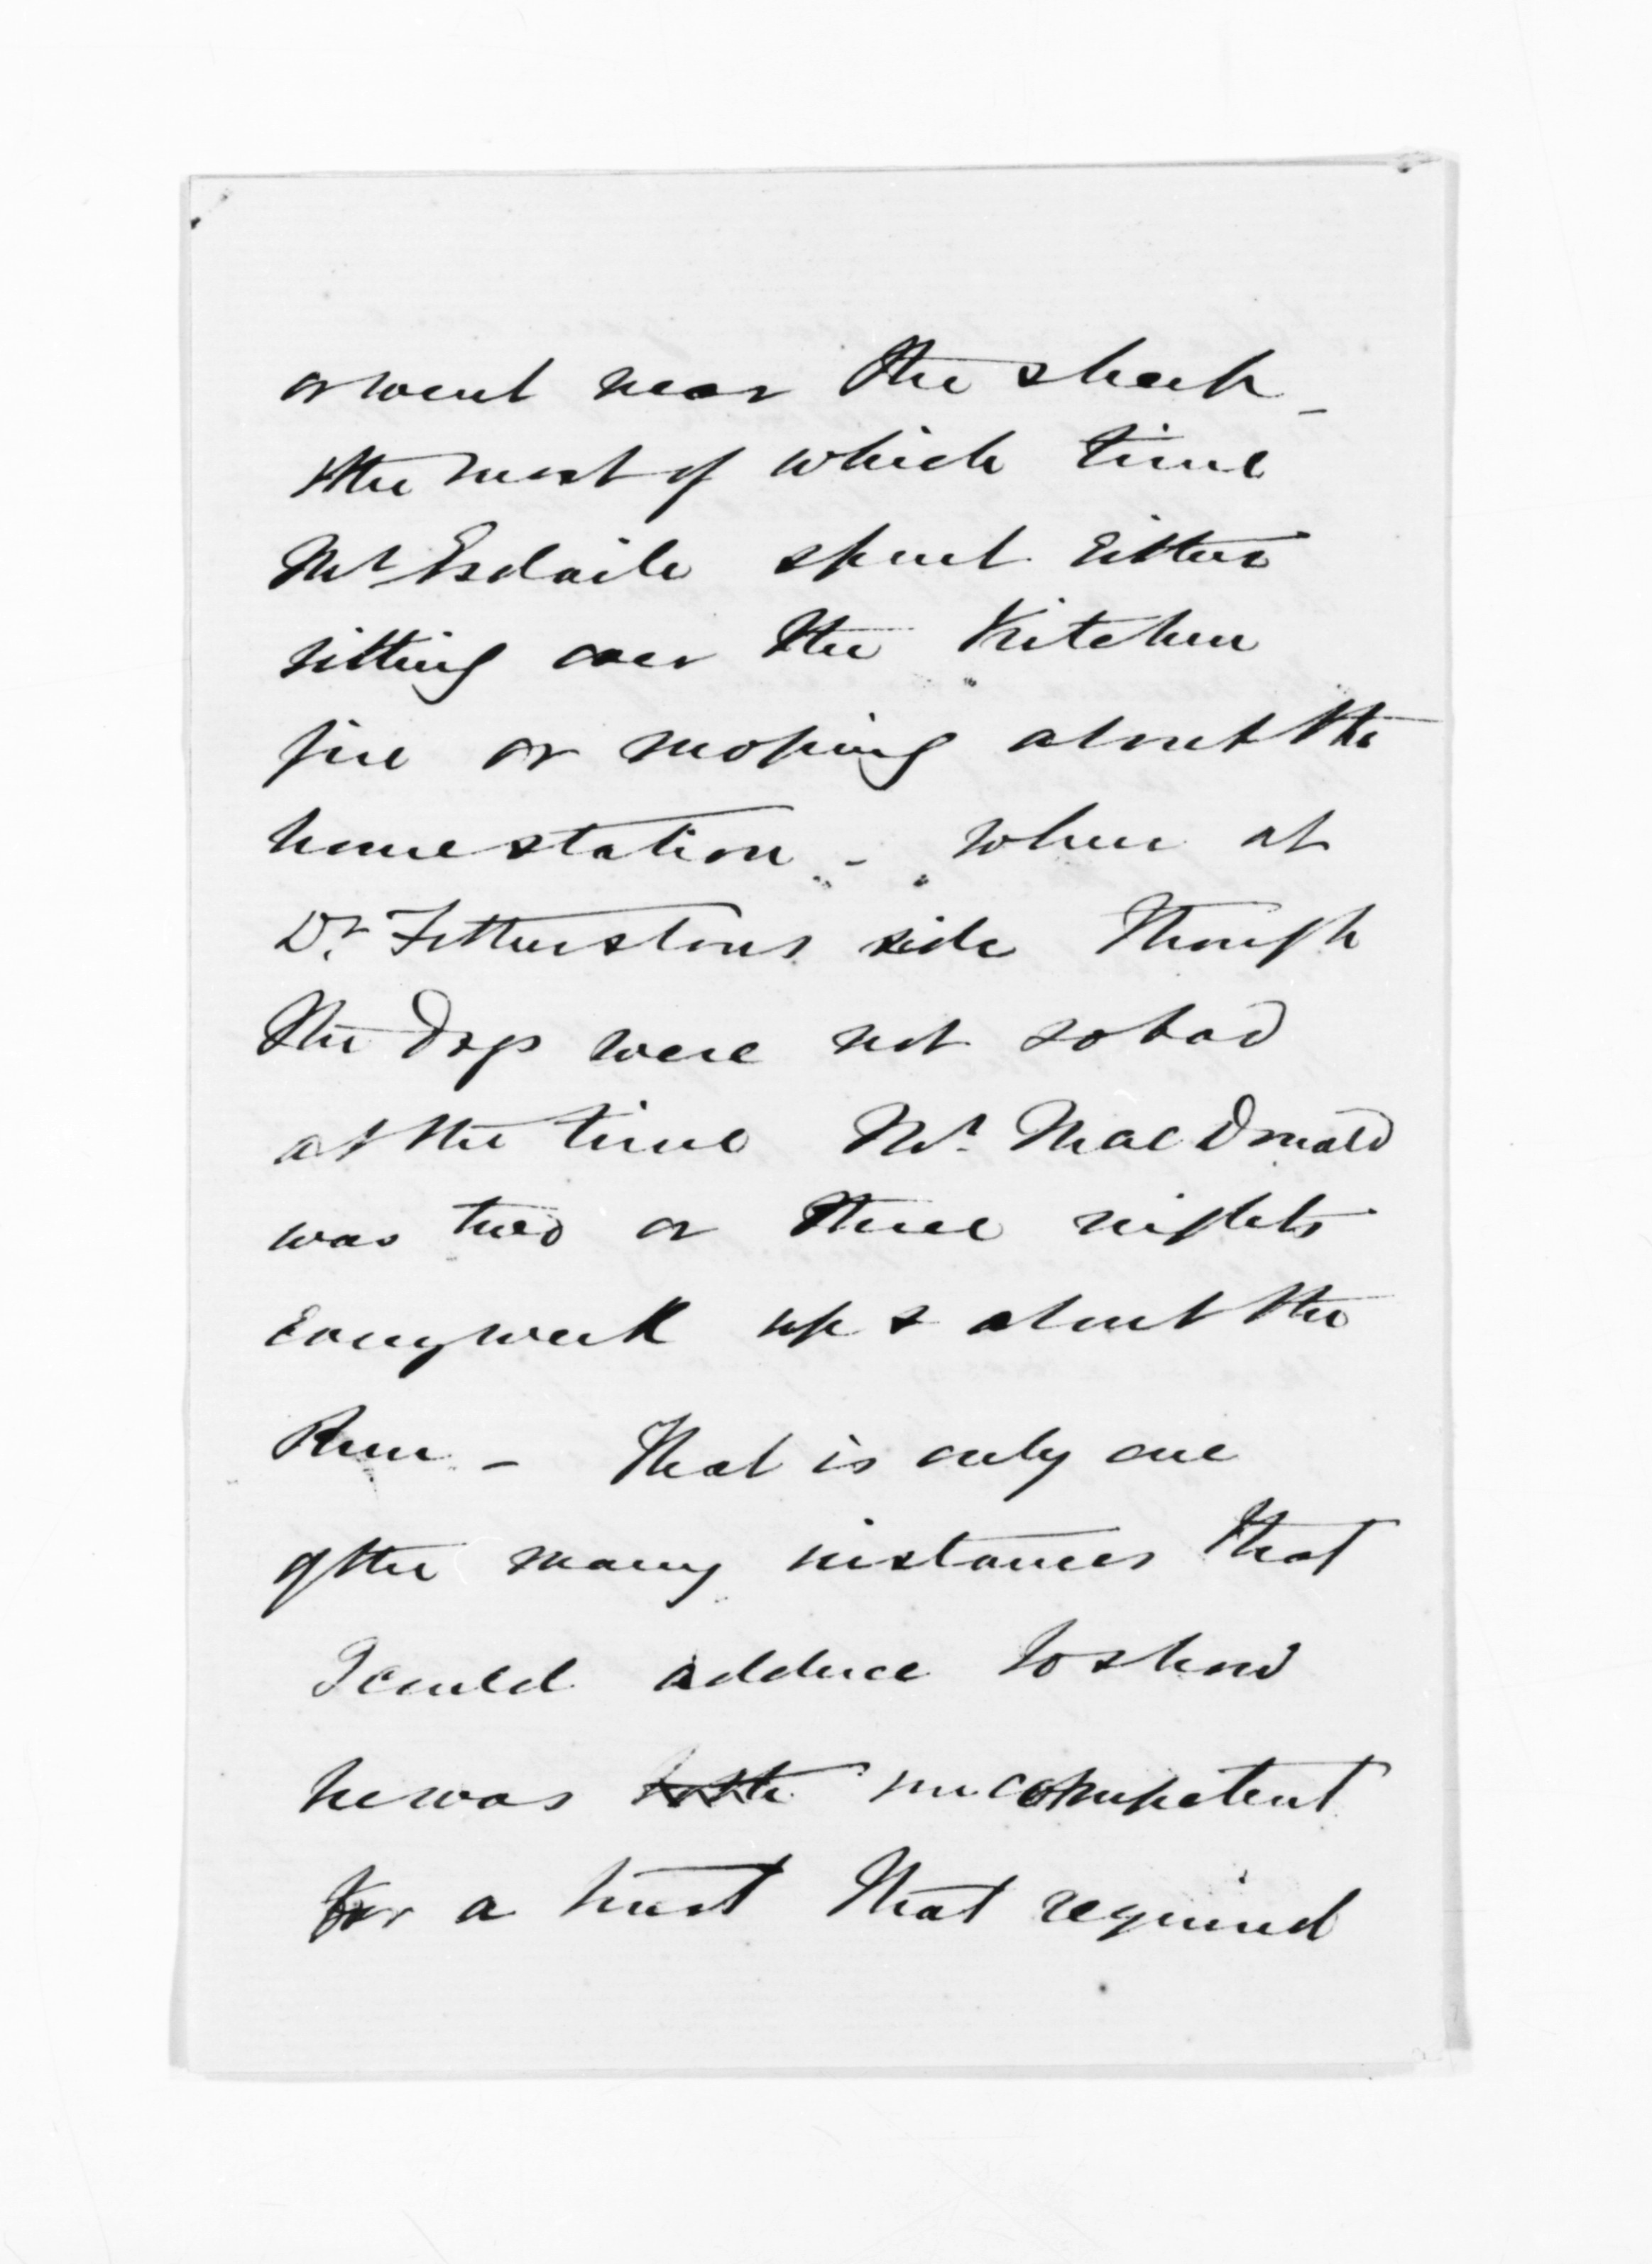 or went near the sheep –
the most of which time
Mr Esdaile spent either
sitting over the Kitchen
fire or moping about the
home station – when at
Dr. Fetherstons side though
the Dogs were not so bad
at the time Mr. MacDonald
was two or three nights
Every week up & about the
Run – That is only one
of the many instances that
I could adduce to show
he was incompetent
for a trust that required